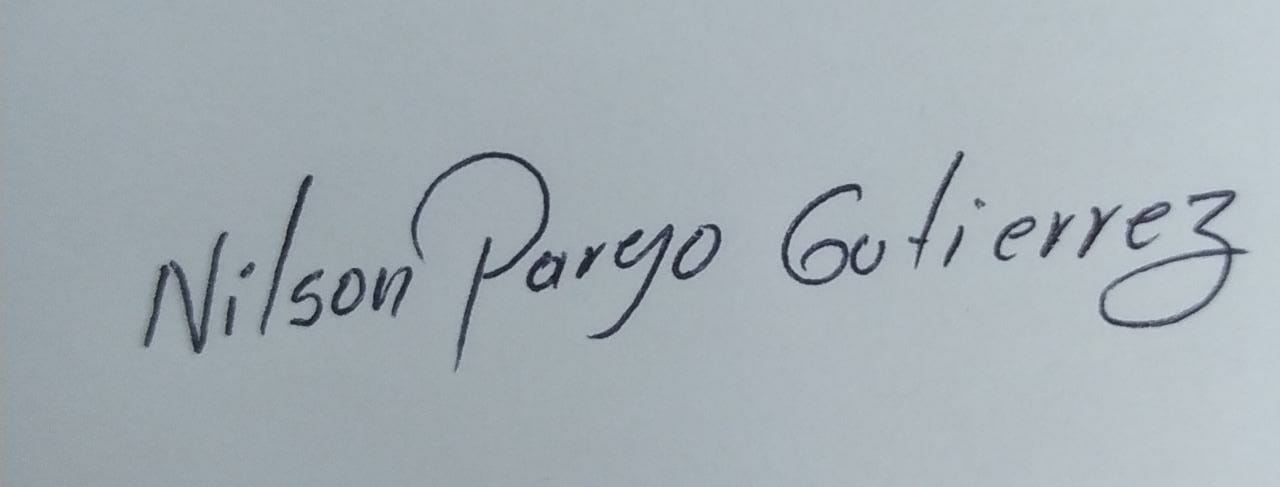 Nilson Pareyo Gutierrez